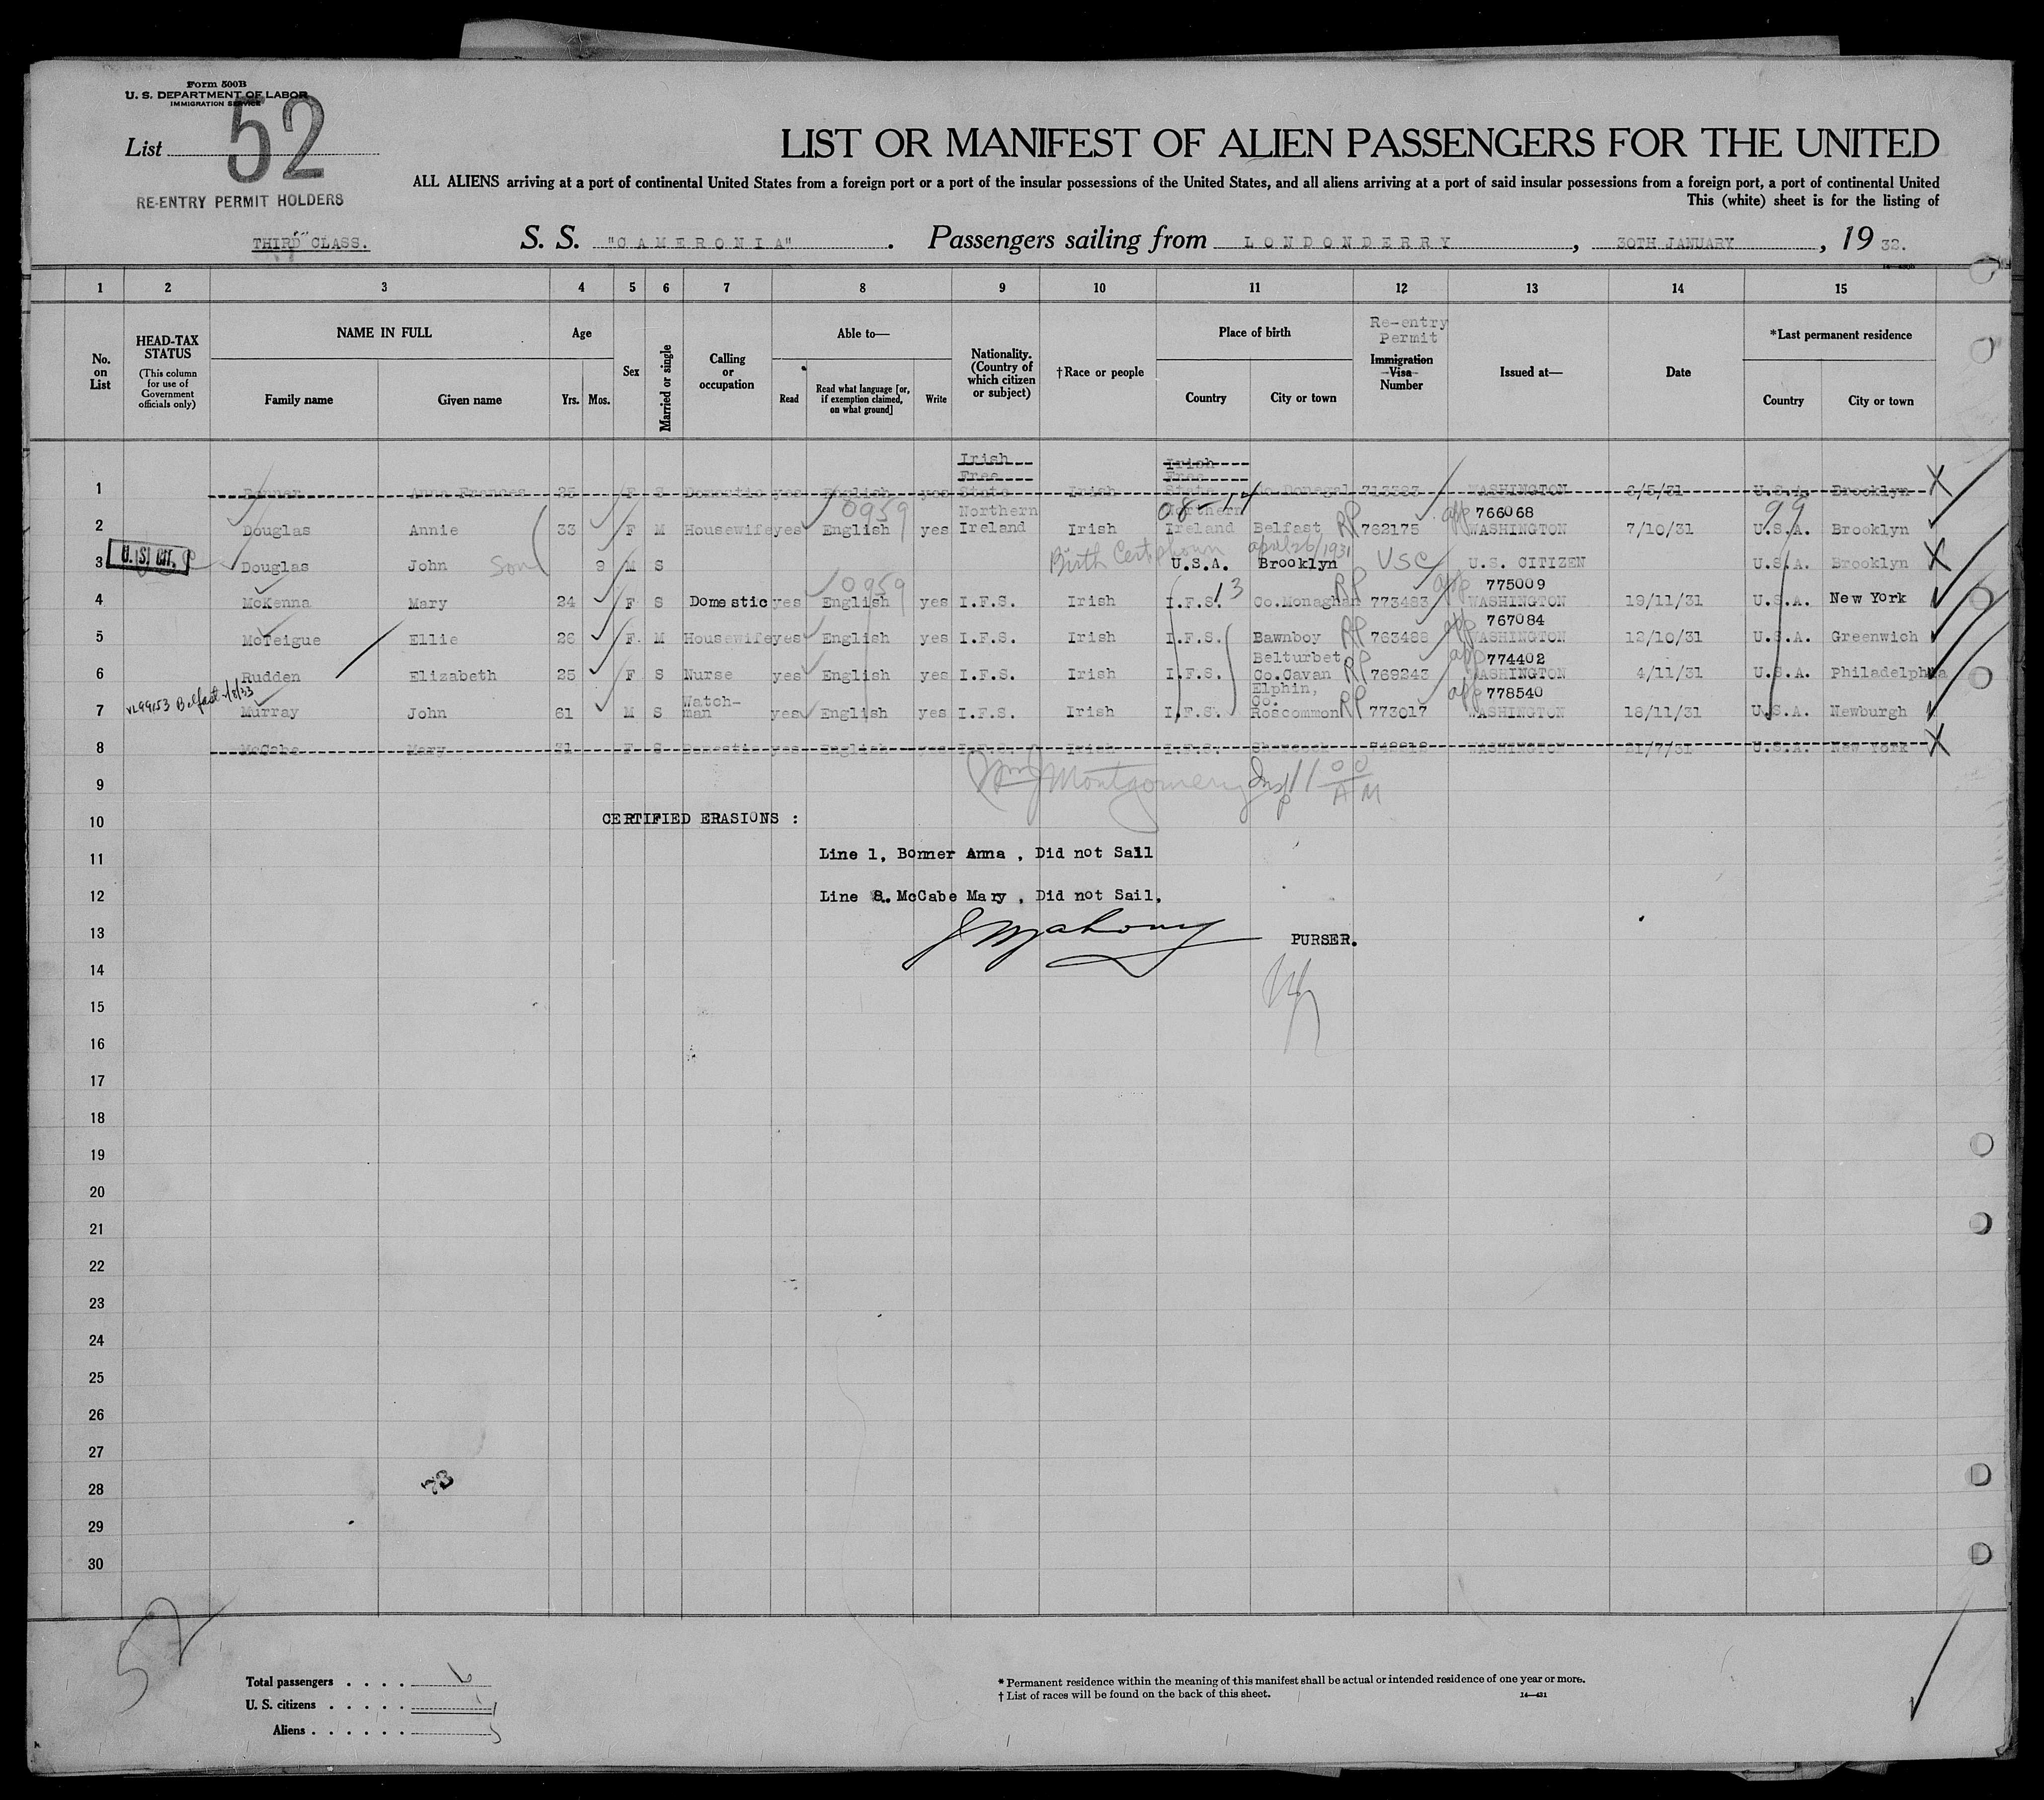 Form 500B
U. S. DEPARTMENT OF LABOR
IMMIGRATION SERVICE
List 52
RE-ENTRY PERMIT HOLDERS
LIST OR MANIFEST OF ALIEN PASSENGERS FOR THE UNITED
ALL ALIENS arriving at a port of continental United States from a foreign port or a port of the insular possessions of the United States, and all aliens arriving at a port of said insular possessions from a foreign port, a port of continental United
This (white) sheet is for the listing of
THIRD CLASS. S. S. "CAMERONIA" . Passengers sailing from LONDONDERRY , 30TH JANUARY , 19 32.
1 2 3 4 5 6 7 8 9 10 11 12 13 14 15
No. on List
HEAD-TAX STATUS
(This column for use of Government officials only)
NAME IN FULL
Family name Given name
Age
Yrs. Mos.
Sex
Married or single
Calling or occupation
Able to—
Read Read what language [or, if exemption claimed, on what ground] Write
Nationality. (Country of which citizen or subject)
†Race or people
Place of birth
Country City or town
Re-entry Permit
Immigration Visa Number
Issued at—
Date
*Last permanent residence
Country City or town
1 Bonner Anna Frances 25 F S Domestic yes English yes Irish Free State Irish Irish Free State Co.Donegal 713383 WASHINGTON 6/5/31 U.S.A. Brooklyn X
0959 08-14 99
2 Douglas Annie 33 F M Housewife yes English yes Northern Ireland Irish Northern Ireland Belfast RP 762175 app 766068 WASHINGTON 7/10/31 U.S.A. Brooklyn
U.S. CIT.
Birth Cert shown april 26/1931
3 Douglas John Son 9 M S U.S.A. Brooklyn USC U.S. CITIZEN U.S.A. Brooklyn X
0959 13
4 McKenna Mary 24 F S Domestic yes English yes I.F.S. Irish I.F.S. Co.Monaghan RP 773483 app 775009 WASHINGTON 19/11/31 U.S.A. New York
5 McTeigue Ellie 26 F M Housewife yes English yes I.F.S. Irish I.F.S. Bawnboy RP 763488 app 767084 WASHINGTON 12/10/31 U.S.A. Greenwich
6 Rudden Elizabeth 25 F S Nurse yes English yes I.F.S. Irish I.F.S. Belturbet Co.Cavan RP 769243 app 774402 WASHINGTON 4/11/31 U.S.A. Philadelphia
Belfast
7 Murray John 61 M S Watch-man yes English yes I.F.S. Irish I.F.S. Elphin, Co. Roscommon RP 773017 app 778540 WASHINGTON 18/11/31 U.S.A. Newburgh
8 McCabe Mary 31 F S Domestic yes English yes I.F.S. Irish I.F.S. WASHINGTON 21/7/31 U.S.A. New York X
9 Wm J Montgomery Insp 11 00 AM
10 CERTIFIED ERASIONS :
11 Line 1, Bonner Anna , Did not Sail
12 Line 8. McCabe Mary , Did not Sail.
13 PURSER.
14
15
16
17
18
19
20
21
22
23
24
25
26
27
28
73
29
30
52
Total passengers . . . . 6
U. S. citizens . . . . . 1
Aliens . . . . . . 5
* Permanent residence within the meaning of this manifest shall be actual or intended residence of one year or more.
† List of races will be found on the back of this sheet.
14—431